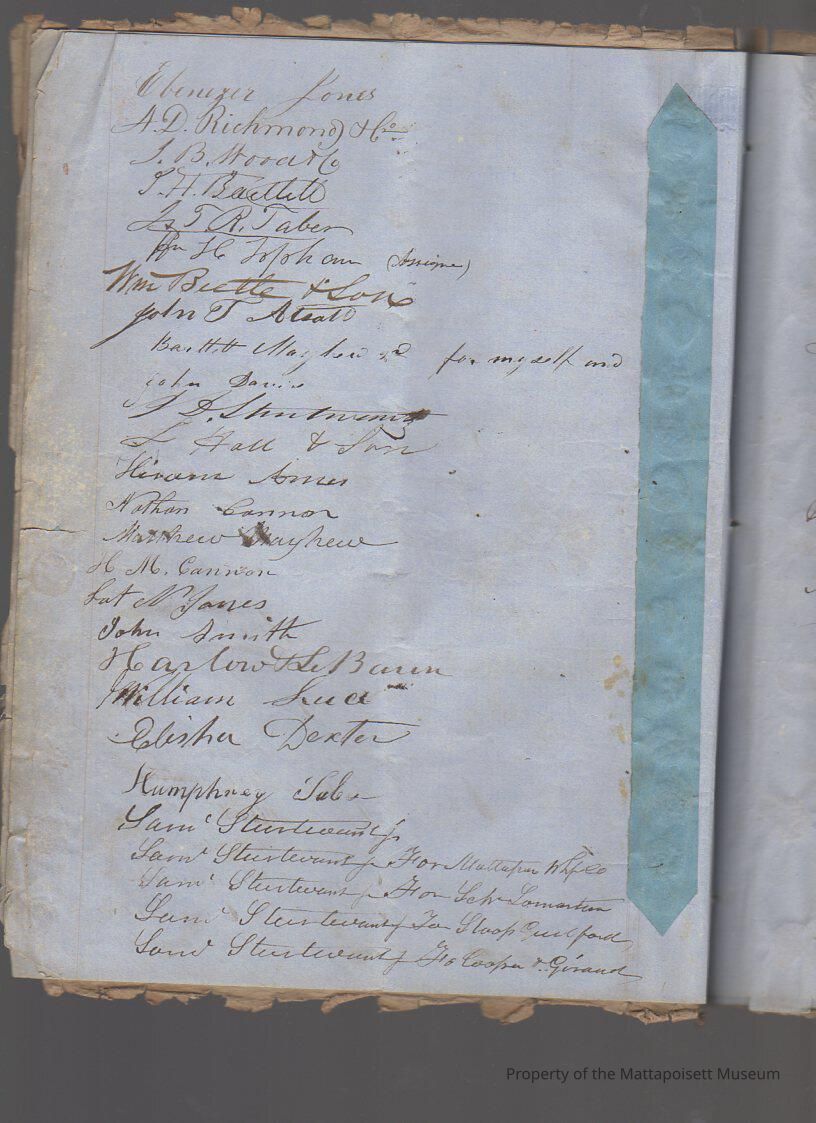 Ebenezer Jones
A. D. Richmond & Co
J. B. Wood & Co
T. H. Bartlett
T. R. Taber
Wm H Topham (Assigne)
Wm Beetle & Son
John T Atsatt
Bartlett Mayhew 2d for myself and
John Davis
J D. Sturtevant
L Hall & Son
Hiram Ames
Nathan Cannon
Matthew Mayhew
H M. Cannon
N Jones
John Smith
Harlow & LeBaron
William Luce
Elisha Dexter
Humphrey Taber
Saml Sturtevant Jr
Saml Sturtevant Jr For Whf Co
Saml Sturtevant Jr For Sch Lamartine
Saml Sturtevant Jr For Sloop Guilford
Saml Sturtevant Jr For Cooper & Giraud
Property of the Mattapoisett Museum